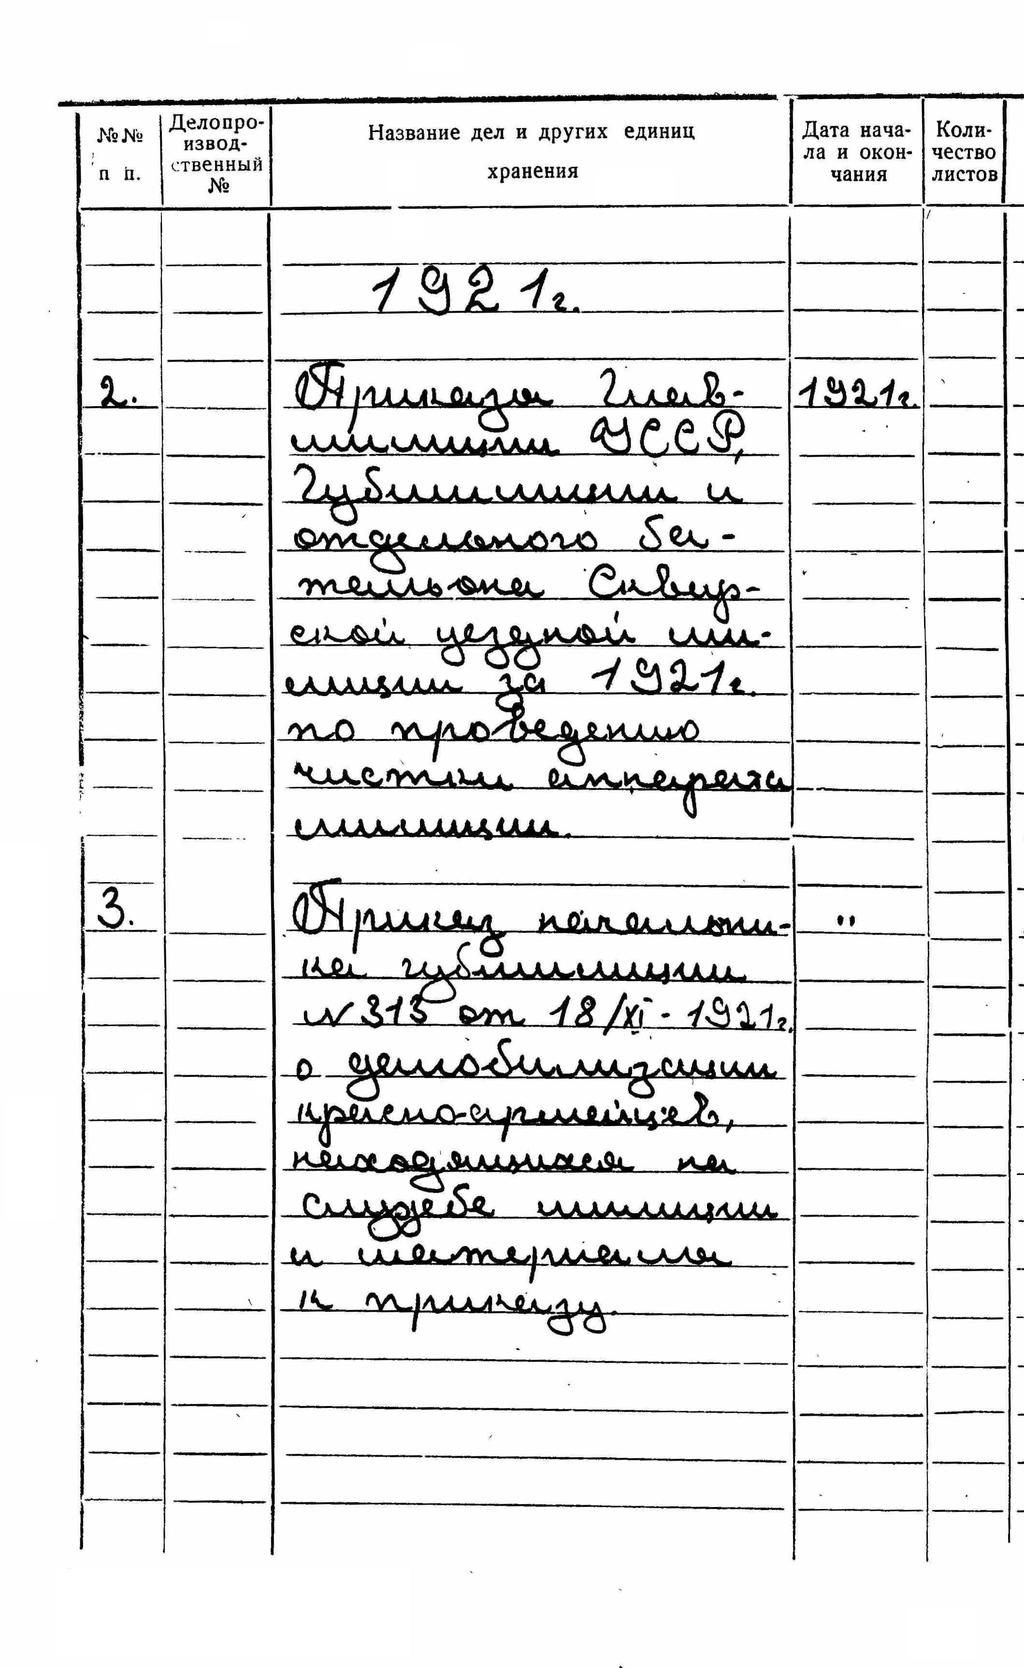 №№ п п.
Делопроизводственный №
Название дел и других единиц хранения
Дата начала и окончания
Количество листов
1921г.
2. Приказы Глав- 1921г.
милиции УССР,
Губмилиции и
отдельного ба-
тальона Сквир-
ской уездной ми-
лиции за 1921г.
по проведению
чистки аппарата
милиции.
3. Приказ начальни- "
ка губмилиции
N 313 от 18/XI - 1921г.
о демобилизации
красно-армейцев,
находящихся на
службе милиции
и материалы
к приказу.